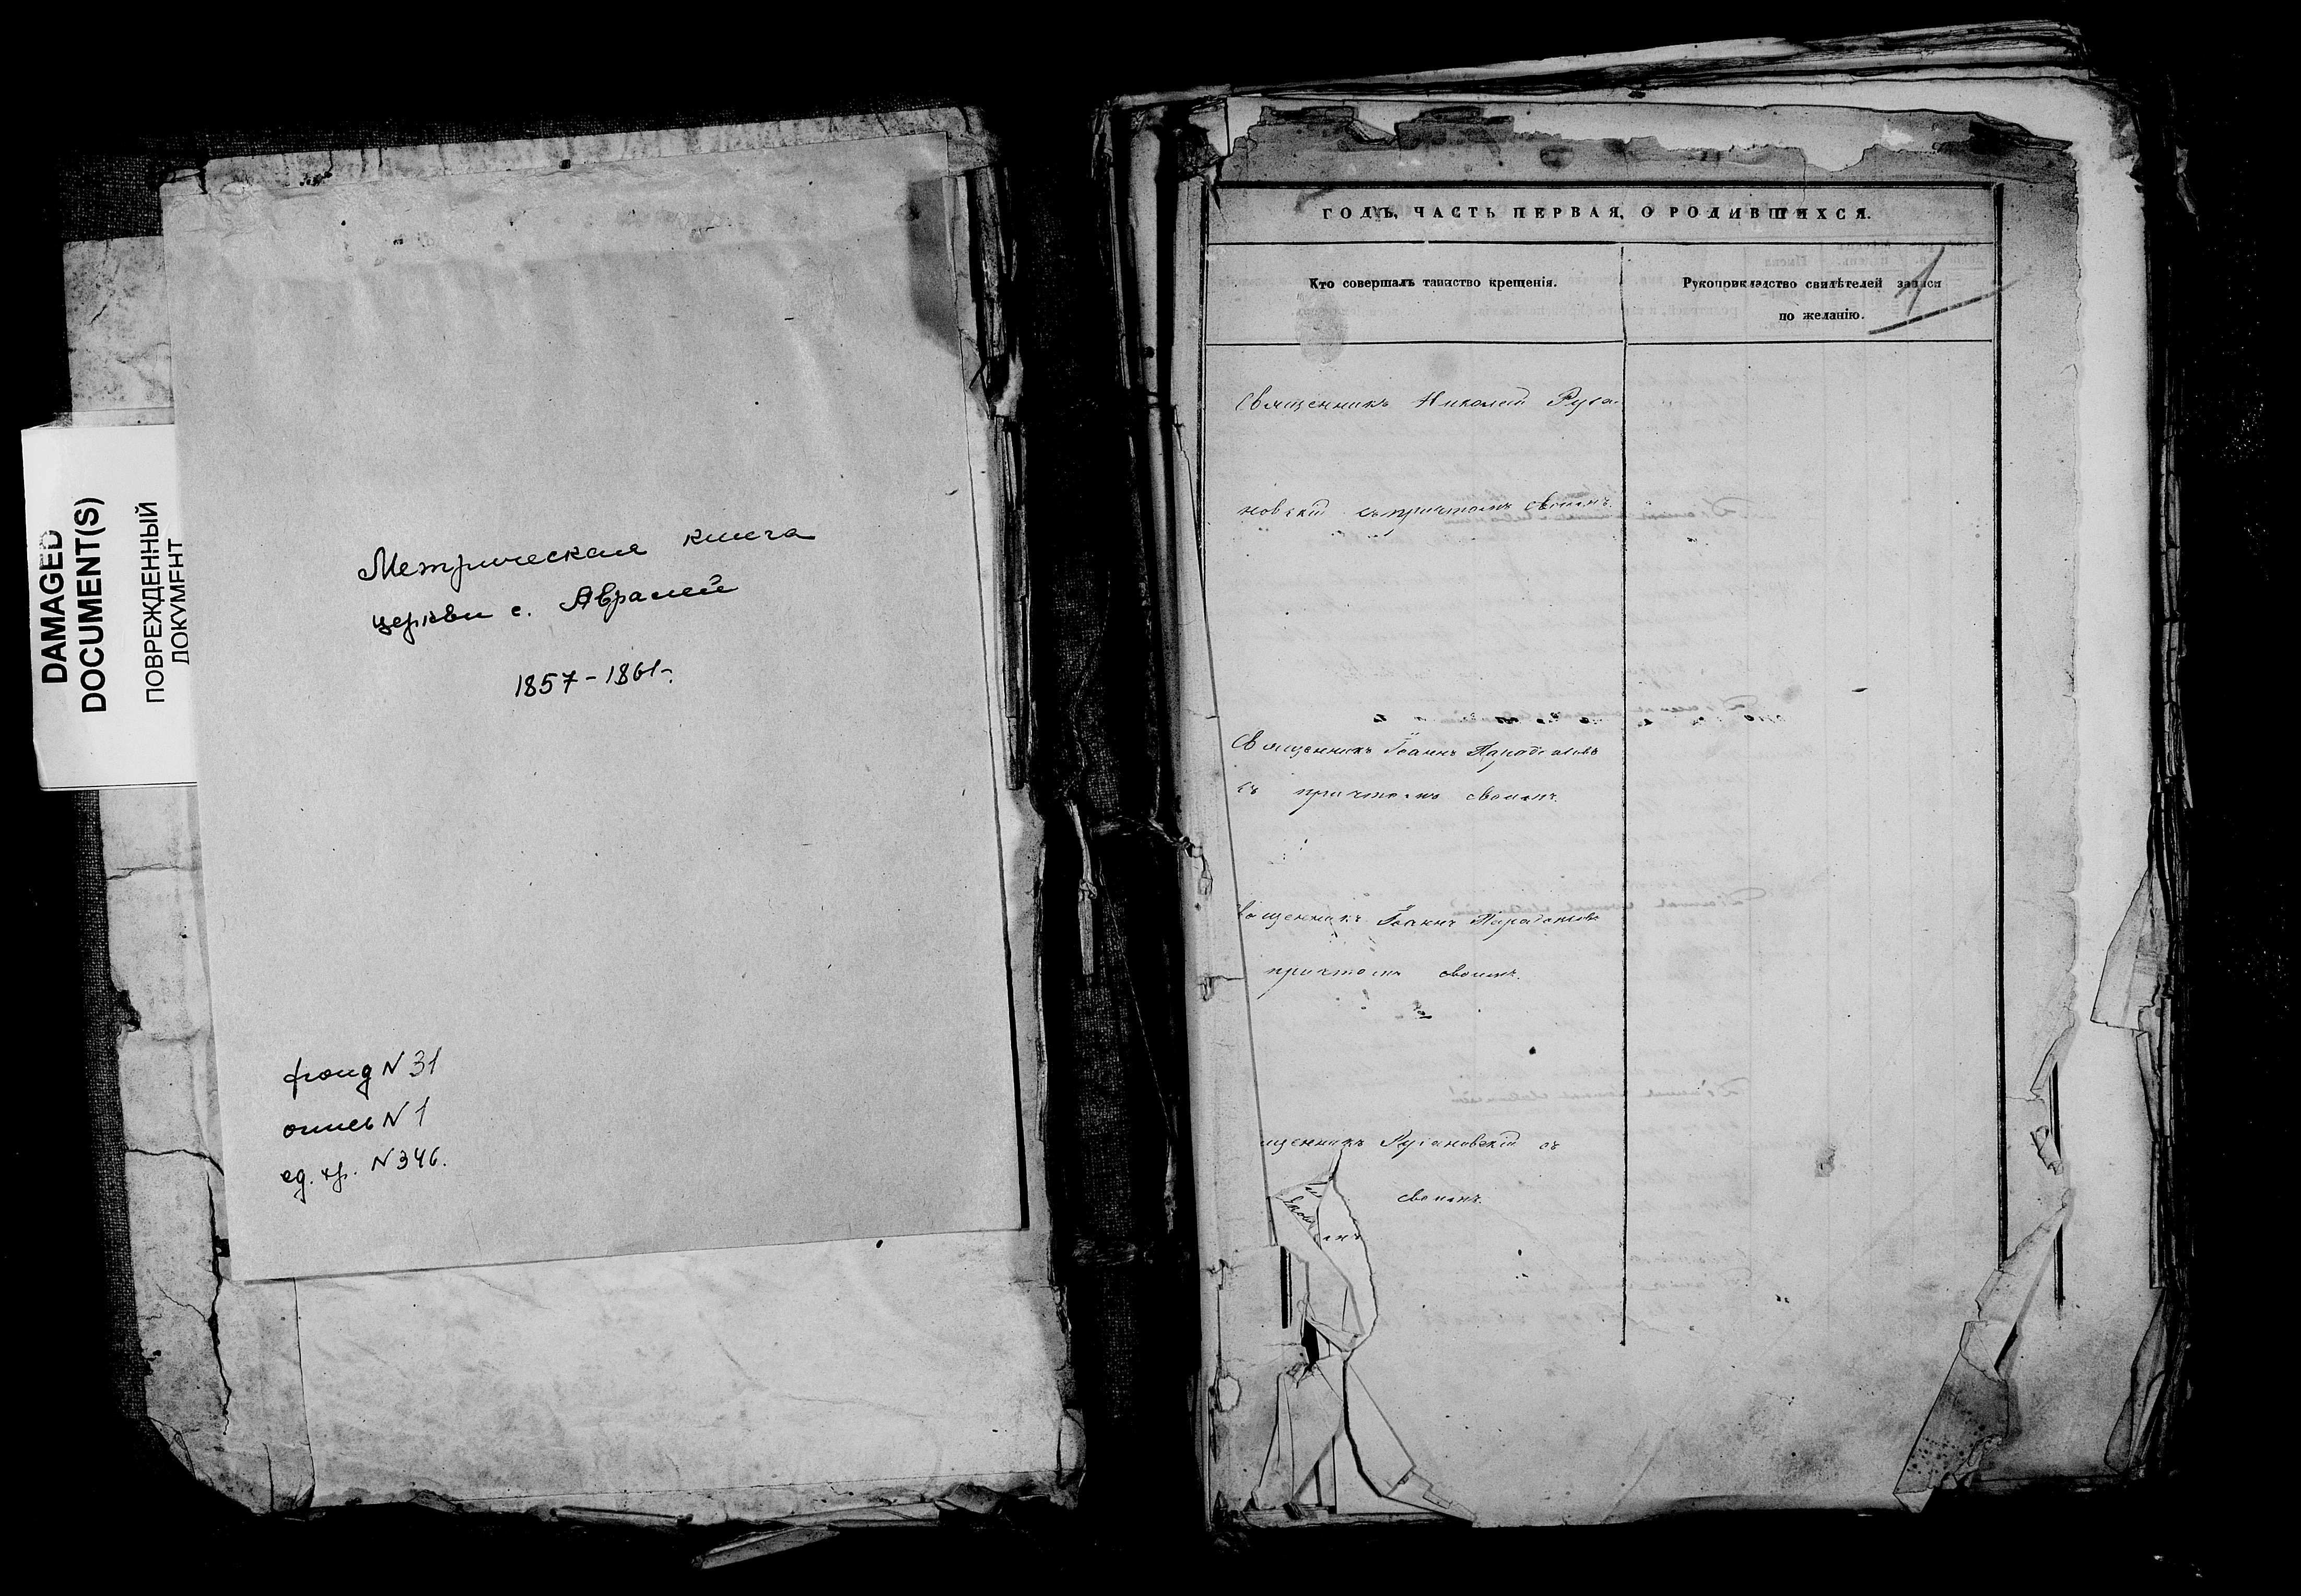 DAMAGED
DOCUMENT(S)
ПОВРЕЖДЕННЫЙ
ДОКУМЕНТ
Метрическая книга
церкви с. Аврамей
1857-1861-
фонд N 31
опись N 1
ед. хр. N 346.
ГОДЪ, ЧАСТЬ ПЕРВАЯ, О РОДИВШИХСЯ.
1
Кто совершалъ таинство крещенія.
Рукоприкладство свидѣтелей записи
по желанію.
Священникъ Николай Руга-
новскій съ причтомъ своимъ.
Священникъ Іоаннъ
съ причтомъ своимъ.
вященникъ Іоаннъ
причтомъ своимъ.
щенникъ Ругановскій съ
своимъ.